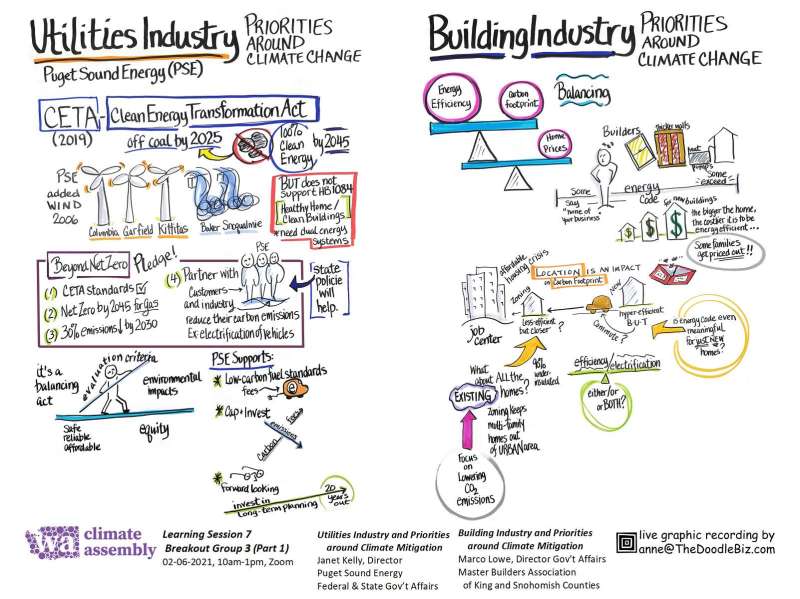 Utilities Industry
PRIORITIES
AROUND
CLIMATE CHANGE
Puget Sound Energy (PSE)
CETA - Clean Energy Transformation Act
(2019)
off coal by 2025
100%
Clean
Energy
by 2045
PSE
added
WIND
2006
Columbia Garfield Kittitas
Baker Snoqualmie
BUT does not
support HB1084
Healthy Home/
Clean Buildings
*need dual energy
systems
Beyond Net Zero Pledge!
(1) CETA standards
(2) Net Zero by 2045 for gas
(3) 30% emissions ↓ by 2030
(4) Partner with
Customers
and industry
reduce their carbon emissions
Ex: electrification of vehicles
PSE
state
policie
will
help.
it's a
balancing
act
evaluation criteria
environmental
impacts
Safe
reliable
affordable
equity
PSE Supports:
* Low-carbon fuel standards
fees
* Cap + Invest
fees
emissions
Carbon
* Forward looking
invest in
long-term planning
20
years
out
Building Industry
PRIORITIES
AROUND
CLIMATE CHANGE
Energy
Efficiency
Carbon
footprint
Balancing
Home
Prices
Builders
thicker walls
heat
pumps
Some
Say
"none of
your business
energy
Code
Some
exceed
for new buildings
$ $ $
the bigger the home,
the costlier it is to be
energy efficient...
Some families
get priced out!!
affordable
housing crisis
LOCATION IS AN IMPACT
on Carbon Footprint
zoning
job
center
Less efficient
but closer?
new
hyper-efficient
B-U-T
Commute?
is energy code even
meaningful
for just NEW
homes?
What
about ALL the
EXISTING homes?
90%
under-
insulated
zoning keeps
multi-family
homes out
of URBAN area
efficiency/electrification
either/or
or BOTH?
Focus
on
Lowering
CO2
emissions
wa climate
assembly
Learning Session 7
Breakout Group 3 (Part 1)
02-06-2021, 10am-1pm, Zoom
Utilities Industry and Priorities
around Climate Mitigation
Janet Kelly, Director
Puget Sound Energy
Federal & State Gov't Affairs
Building Industry and Priorities
around Climate Mitigation
Marco Lowe, Director Gov't Affairs
Master Builders Association
of King and Snohomish Counties
live graphic recording by
anne@TheDoodleBiz.com